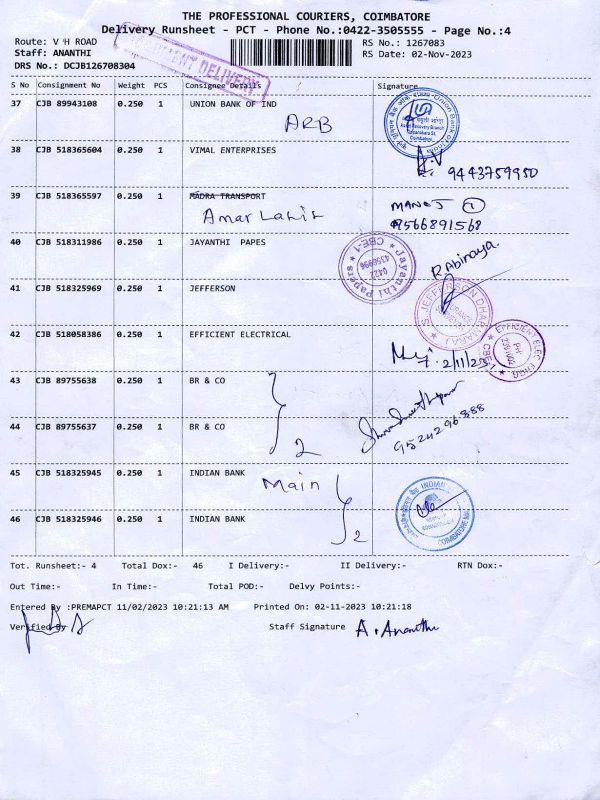 THE PROFESSIONAL COURIERS, COIMBATORE
Delivery Runsheet - PCT - Phone No.:0422-3505555 - Page No.:4
Route: V H ROAD
RS No.: 1267083
Staff: ANANTHI
RS Date: 02-Nov-2023
DRS No.: DCJB126708304
DELIVERY
S No Consignment No Weight PCS Consignee Details Signature
37 CJB 89943108 0.250 1 UNION BANK OF IND
ARB
38 CJB 518365604 0.250 1 VIMAL ENTERPRISES
9443759950
39 CJB 518365597 0.250 1 MADRA TRANSPORT
MANOJ 1
9566891568
40 CJB 518311986 0.250 1 JAYANTHI PAPES
Jayanthi Papers
0422
4356996
CBE-1
R Abinaya.
41 CJB 518325969 0.250 1 JEFFERSON
S. JEFFERSON DHARMARAJ
42 CJB 518058386 0.250 1 EFFICIENT ELECTRICAL
2/11/23
EFFICIENT ELEC ENGG.
CBE-1
43 CJB 89755638 0.250 1 BR & CO
44 CJB 89755637 0.250 1 BR & CO
2
9524296388
45 CJB 518325945 0.250 1 INDIAN BANK
Main
46 CJB 518325946 0.250 1 INDIAN BANK
2
Tot. Runsheet:- 4 Total Dox:- 46 I Delivery:- II Delivery:- RTN Dox:-
Out Time:- In Time:- Total POD:- Delvy Points:-
Entered By :PREMAPCT 11/02/2023 10:21:13 AM Printed On: 02-11-2023 10:21:18
Verified By
Staff Signature A. Ananthi